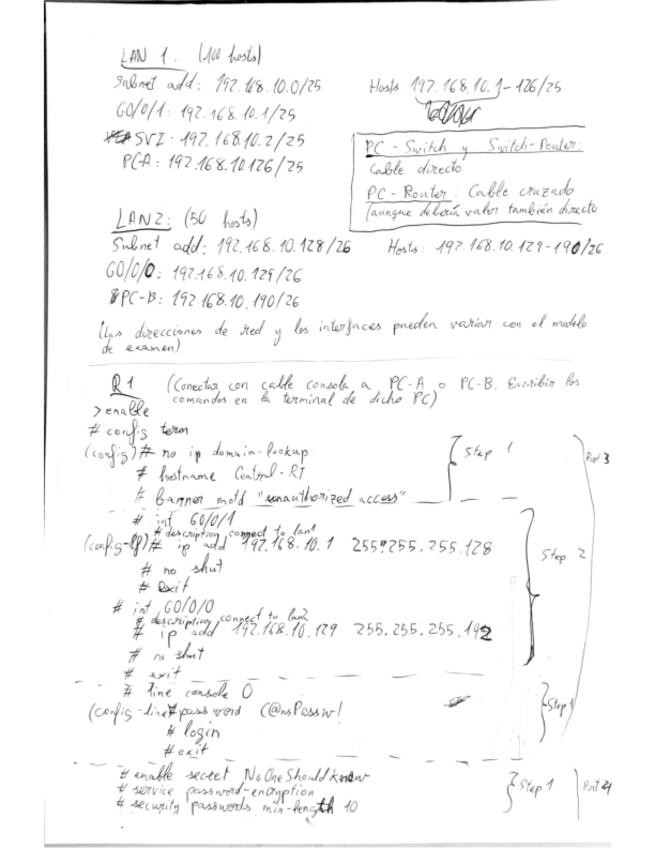 LAN 1. (100 hosts)
Subnet add: 192.168.10.0/25 Hosts 192.168.10.1-126/25
G0/0/1: 192.168.10.1/25
SVI: 192.168.10.2/25
PC-A: 192.168.10.126/25
PC - Switch y Switch-Router:
Cable directo
PC - Router: Cable cruzado
(aunque debería valer también directo
LAN2: (50 hosts)
Subnet add: 192.168.10.128/26 Hosts: 192.168.10.129-190/26
G0/0/0: 192.168.10.129/26
PC-B: 192.168.10.190/26
(Las direcciones de red y las interfaces pueden variar con el modelo
de examen)
R1 (Conectar con cable consola a PC-A o PC-B. Escribir los
comandos en la terminal de dicho PC)
>enable
# config term
(config)# no ip domain-lookup
# hostname Central-R1
# banner motd "unauthorized access"
Step 1
Part 3
# int G0/0/1
# description connect to lan1
(config-if)# ip add 192.168.10.1 255.255.255.128
# no shut
# exit
Step 2
# int G0/0/0
# description connect to lan2
# ip add 192.168.10.129 255.255.255.192
# no shut
# exit
# line console 0
(config-line# password C@nsPassw!
# login
# exit
Step 1
# enable secret NoOneShouldknow
# service password-encryption
# security passwords min-length 10
Step 1
Part 4